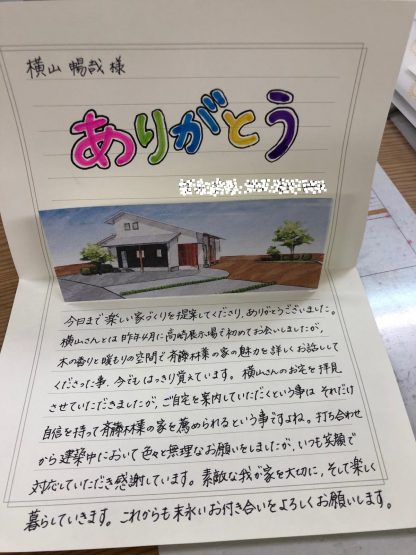 横山 暢哉 様
ありがとう
今日まで楽しい家づくりを提案してくださり、ありがとうございました。
横山さんとは昨年4月に高崎展示場で初めてお会いしましたが、
木の香りと暖もりの空間で斉藤林業の家の魅力を詳しくお話しして
くださった事、今でもはっきり覚えています。横山さんのお宅を拝見
させていただきましたが、ご自宅を案内していただくという事は それだけ
自信を持って斉藤林業の家を薦められるという事ですよね。打ち合わせ
から建築中において色々と無理なお願いをしましたが、いつも笑顔で
対応していただき感謝しています。素敵な我が家を大切に、そして楽しく
暮らしていきます。これからも末永いお付き合いをよろしくお願いします。